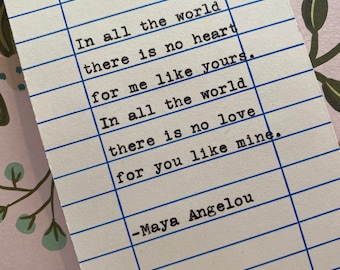 In all the world
there is no heart
for me like yours.
In all the world
there is no love
for you like mine.
-Maya Angelou